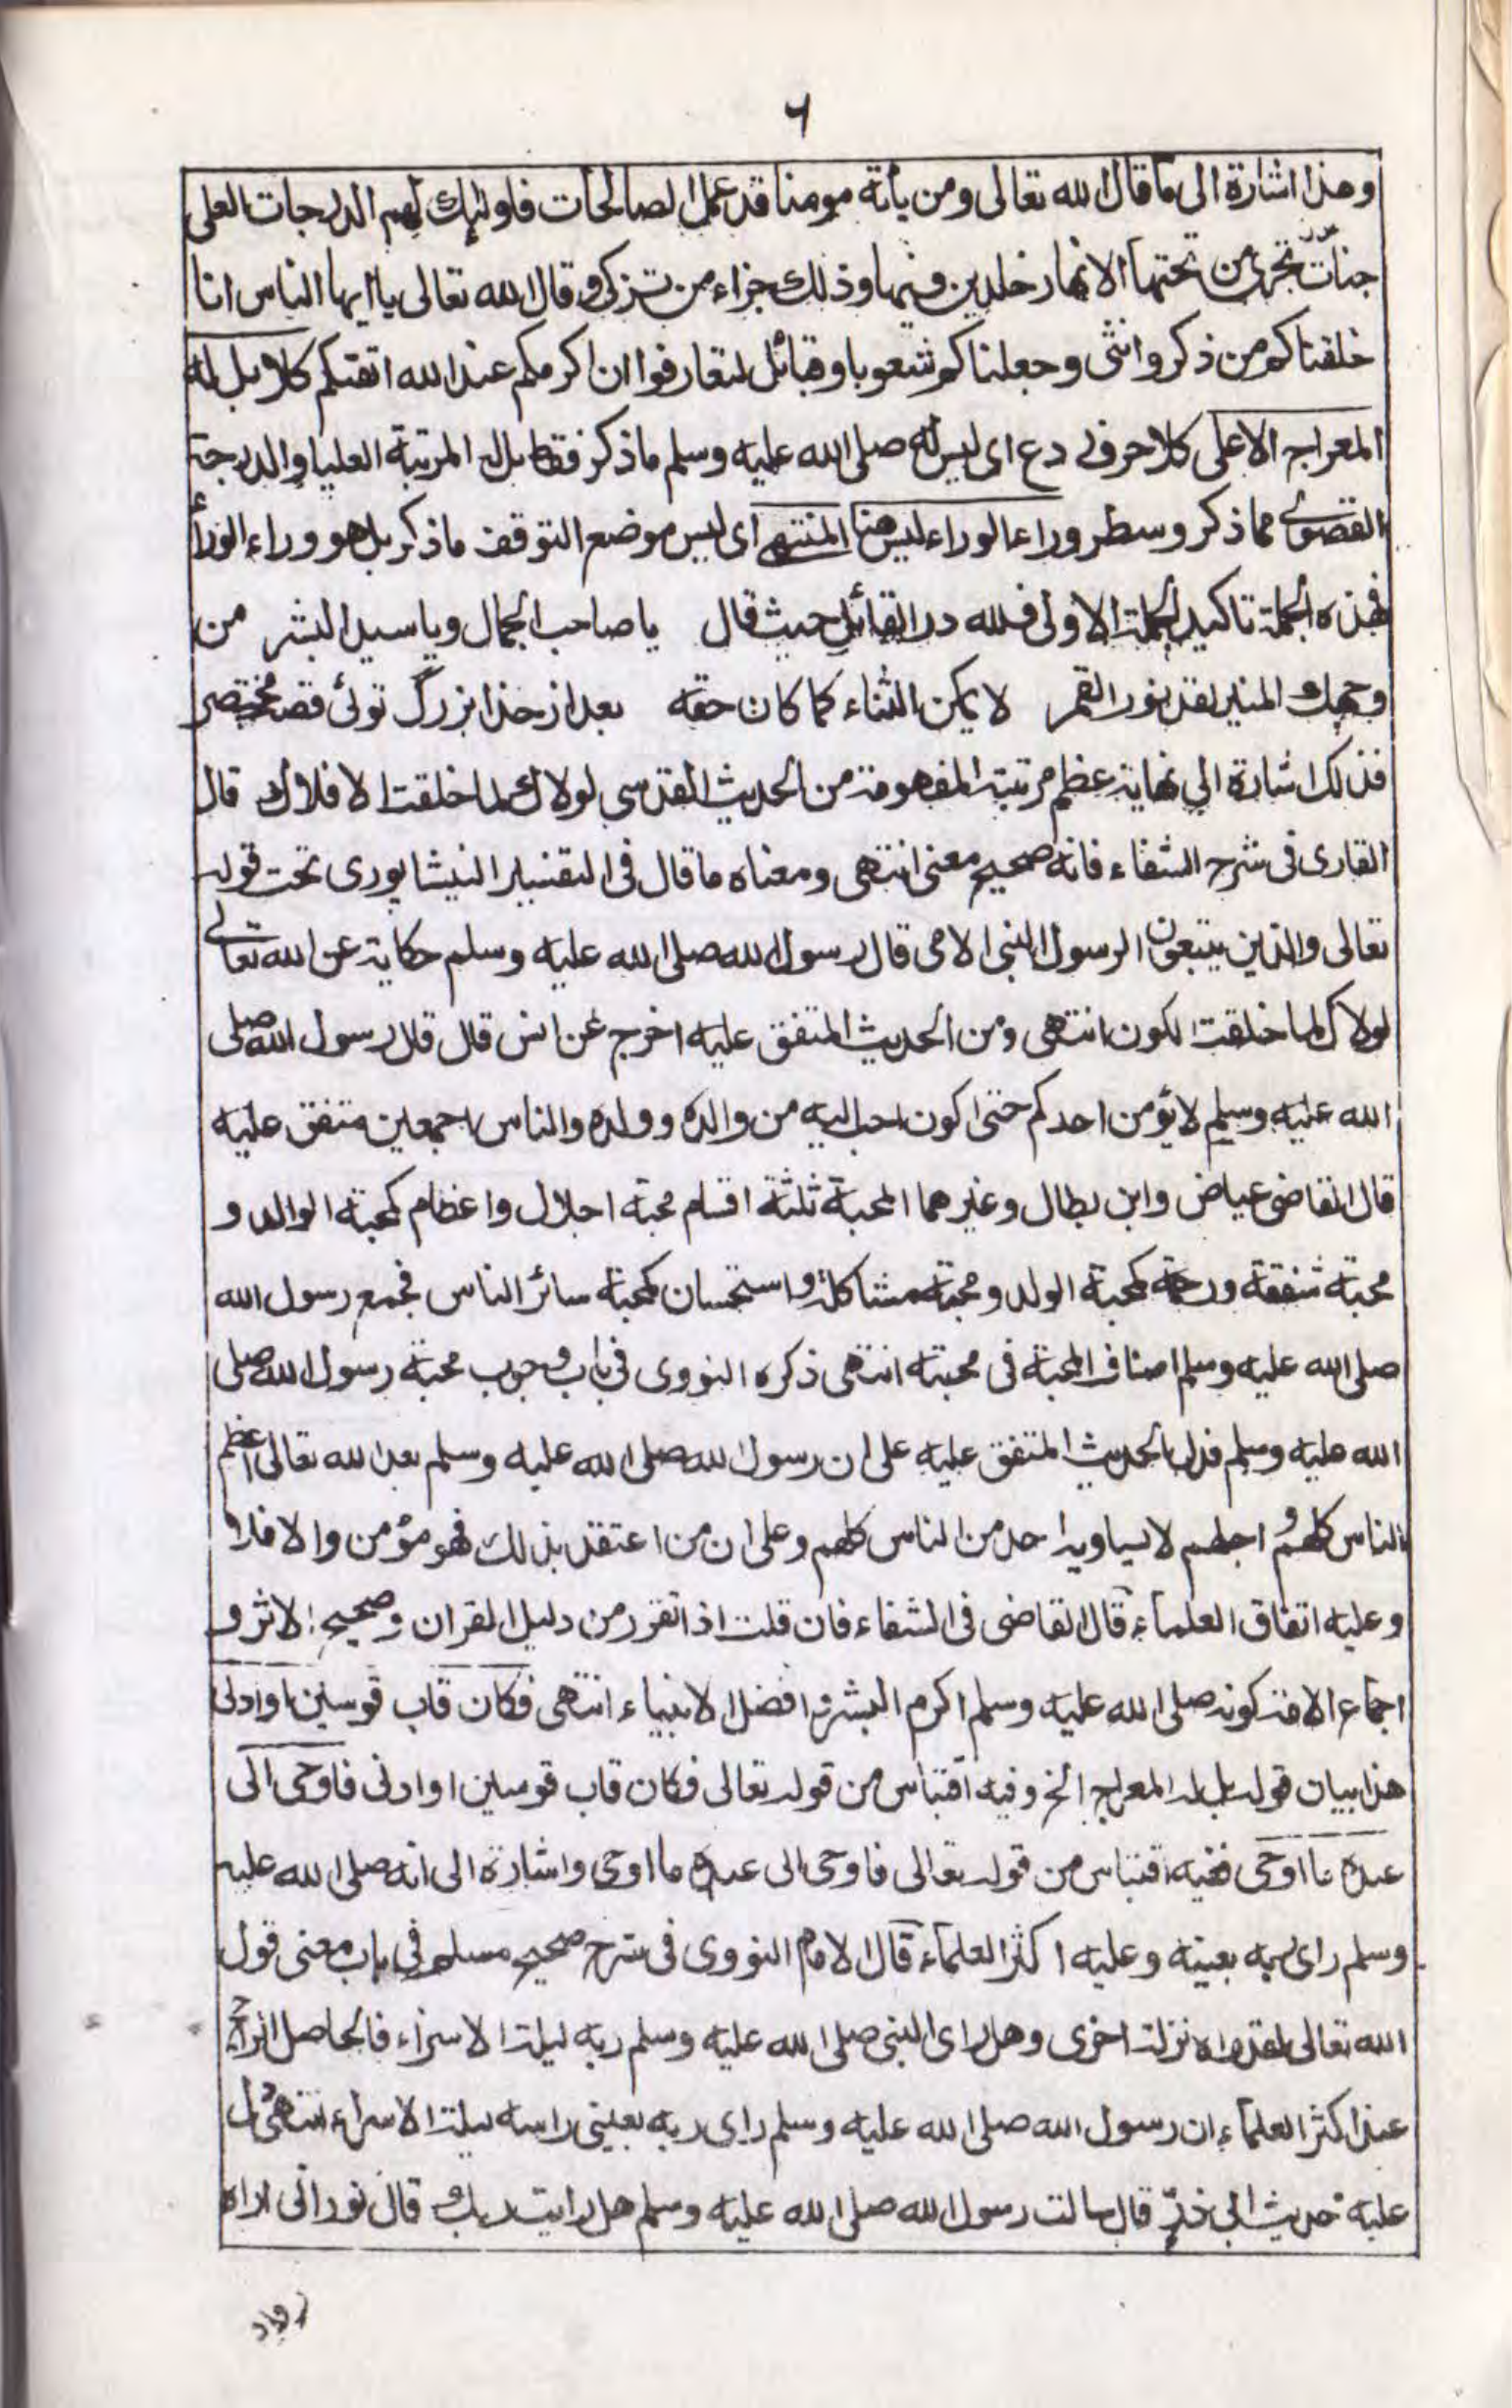 ٦
وهذا اشارة الى ما قال الله تعالى ومن يأته مومنا قد عمل الصالحات فاولئك لهم الدرجات العلى
جنات تجرى من تحتها الانهار خلدين فيها وذلك جزاء من تزكى وقال الله تعالى يا ايها الناس انا
خلقناكم من ذكر وانثى وجعلناكم شعوبا وقبائل لتعارفوا ان اكرمكم عند الله اتقىكم كلا بل له
المعراج الاعلى كلا حرف ردع اى ليس له صلى الله عليه وسلم ما ذكر فقط بل له المرتبة العليا والدرجة
القصوى مما ذكر وسطر وراء الوراء ليس هنا المنتهى اى ليس موضع التوقف ما ذكر بل هو وراء الوراأ
فهذه الجملة تاكيد للجملة الاولى فلله در القائل حيث قال يا صاحب الجمال ويا سيد البشر من
وجهك المنير لقد نور القمر لا يمكن الثناء كما كان حقه بعد از خدا بزرگ توئى قصه مختصر
فذلك اشارة الى نهاية عظم مرتبته المفهومة من الحديث القدسى لولاك لما خلقت الافلاك قال
القارى فى شرح الشفاء فانه صحيح معنى انتهى ومعناه ما قال فى التفسير النيشاپورى تحت قوله
تعالى والذين يتبعون الرسول النبى الامى قال رسول الله صلى الله عليه وسلم حكاية عن الله تعالے
لولاك لما خلقت الكون انتهى ومن الحديث المتفق عليه اخرج عن انس قال قال رسول الله صلى
الله عليه وسلم لا يؤمن احدكم حتى اكون احب اليه من والده وولده والناس اجمعين متفق عليه
قال القاضى عياض وابن بطال وغيرهما المحبة ثلثة اقسام محبة اجلال واعظام كمحبة الوالد و
محبة شفقة ورحمة كمحبة الولد ومحبة مشاكلة واستحسان كمحبة سائر الناس فجمع رسول الله
صلى الله عليه وسلم اصناف المحبة فى محبته انتهى ذكره النووى فى باب وجوب محبة رسول الله صلى
الله عليه وسلم فدل الحديث المتفق عليه على ان رسول الله صلى الله عليه وسلم بعد الله تعالى اعظم
الناس كلهم و اجلهم لا يساويه احد من الناس كلهم وعلى ان من اعتقد بذلك فهو مؤمن والا فلا
وعليه اتفاق العلماء قال القاضى فى الشفاء فان قلت اذا تقرر من دليل القران وصحيح الاثر و
اجماع الامة كونه صلى الله عليه وسلم اكرم البشر و افضل الانبياء انتهى فكان قاب قوسين او ادنى
هذا بيان قوله بل له المعراج الخ وفيه اقتباس من قوله تعالى فكان قاب قوسين او ادنى فاوحى الى
عبده ما اوحى ففيه اقتباس من قوله تعالى فاوحى الى عبده ما اوحى واشارة الى انه صلى الله عليه
وسلم راى ربه بعينه وعليه اكثر العلماء قال الامام النووى فى شرح صحيح مسلم فى باب معنى قول
الله تعالى لقد راه نزلة اخرى وهل راى النبى صلى الله عليه وسلم ربه ليلة الاسراء فالحاصل الراجح
عند اكثر العلماء ان رسول الله صلى الله عليه وسلم راى ربه بعينى راسه ليلة الاسراء انتهى دل
عليه حديث ابى ذر قال سالت رسول الله صلى الله عليه وسلم هل رايت ربك قال نور انى اراه